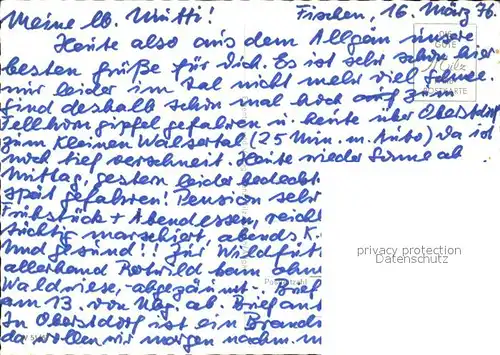 Fischen, 16. März 76.
Meine lb. Mutti!
Heute also aus dem Allgäu unsere
besten Grüße für Dich. Es ist sehr schön hier
nur leider im Tal nicht mehr viel Schnee.
Sind deshalb schon mal hoch auf zum
Fellhorngipfel gefahren u. heute über Oberstdorf
zum Kleinen Walsertal (25 Min. m. Auto) da ist
noch tief verschneit. Heute wieder Sonne ab
Mittag, gestern leider bedeckt
spät gefahren! Pension sehr
Frühstück + Abendessen, reicht
tüchtig marschiert, abends K.
und gesund!! Zur Wildfüt
allerhand Rotwild kam ahn
Waldwiese, abgezäunt. Brief
am 13. von Nbg. ab. Brief aus
In Oberstdorf ist ein Brands
da wollen wir morgen nachm.
DIE
GUTE
POSTKARTE
privacy protection
Datenschutz